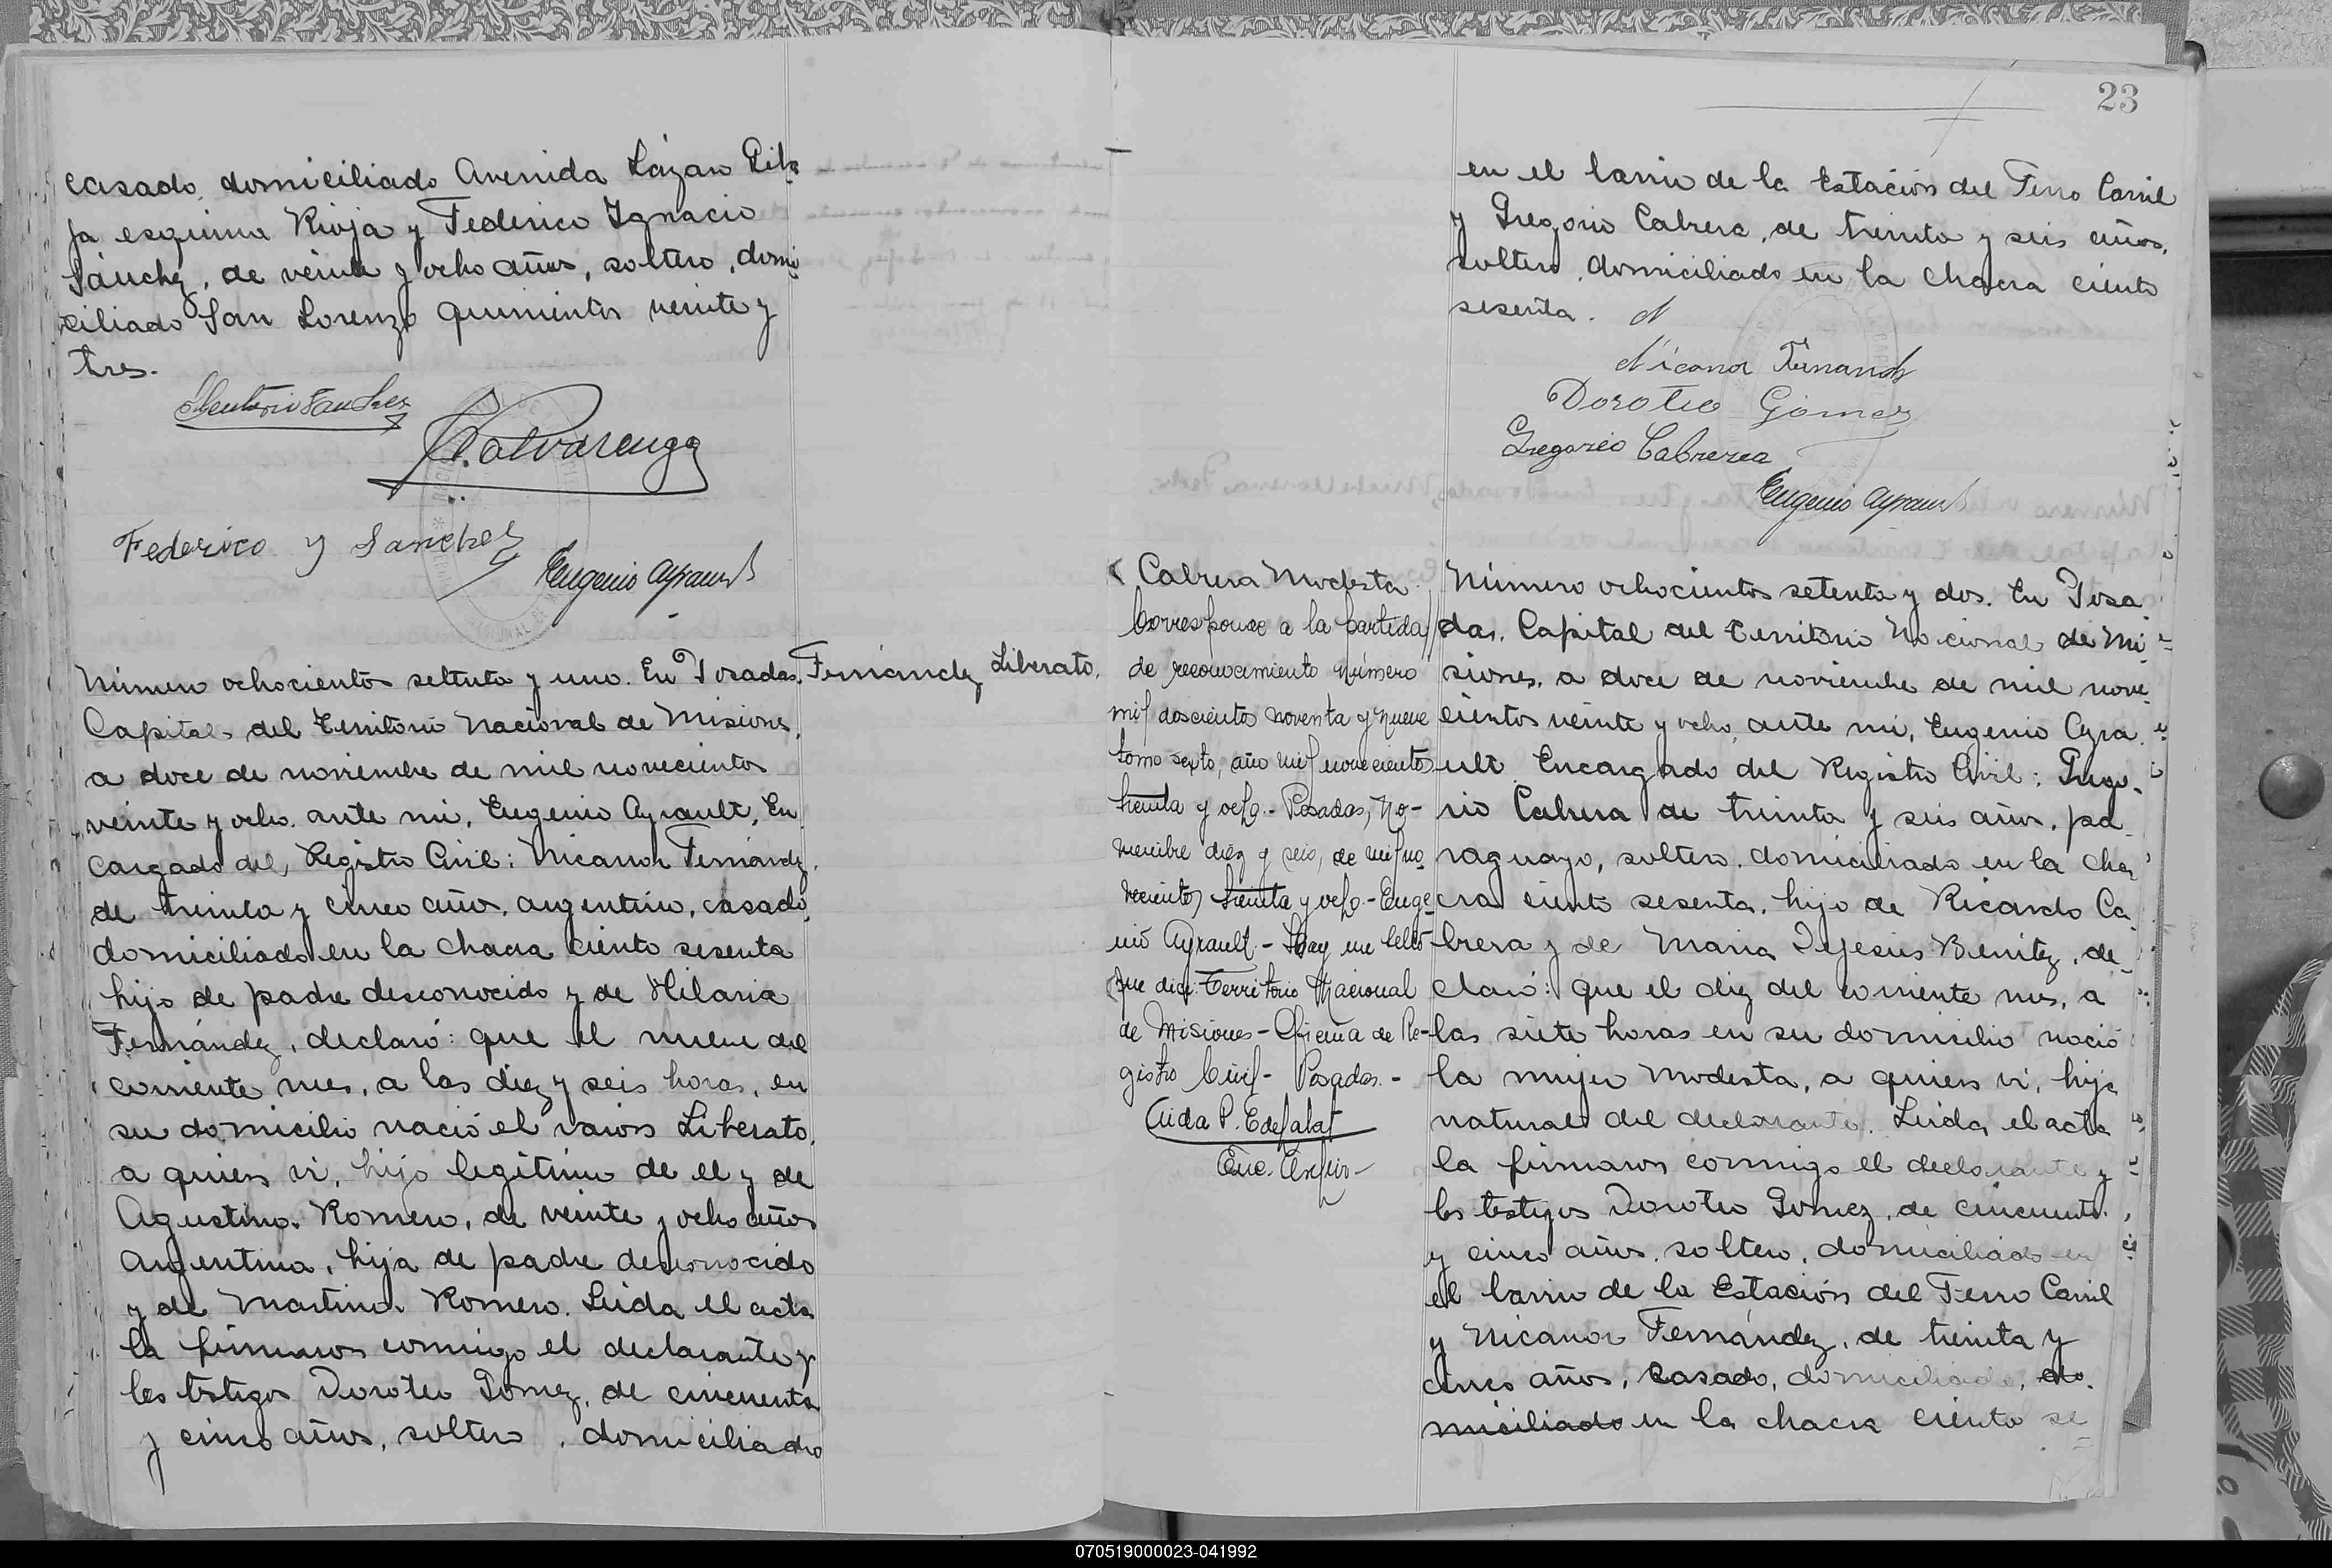 casado, domiciliado Avenida Lázaro Gib
ja esquina Rioja y Federico Ignacio
Sánchez, de veinte y ocho años, soltero, domi
ciliado San Lorenzo quinientos veinte y
tres.
Sanchez
Alvarenga
Federico Y Sanchez
Eugenio Ayrault
Número ochocientos setenta y uno. En Posadas,
Fernández Liberato.
Capital del Territorio Nacional de Misiones,
a doce de noviembre de mil novecientos
veinte y ocho, ante mi, Eugenio Ayrault, En
cargado del Registro Civil: Nicanor Fernández,
de treinta y cinco años, argentino, casado,
domiciliado en la chacra ciento sesenta
hijo de padre desconocido y de Hilaria
Fernández, declaró: que el nueve del
corriente mes, a las diez y seis horas, en
su domicilio nació el varon Liberato,
a quien vi, hijo legítimo de el y de
Agustina Romero, de veinte y ocho años
Argentina, hija de padre desconocido
y de Martina Romero. Leida el acta
la firmaron conmigo el declarante y
los testigos Doroteo Gomez, de cincuenta
y cinco años, soltero, domiciliado
23
en el barrio de la Estación del Ferro Carril
y Gregorio Cabrera, de treinta y seis años,
soltero, domiciliado en la chacra ciento
sesenta. N
Nicanor Fernandez
Doroteo Gómez
Gregorio Cabrerea
Eugenio Ayrault
Cabrera Modesta
Corresponde a la partida
de reconocimiento número
mil doscientos noventa y nueve
tomo sexto, año mil novecientos
treinta y ocho.- Posadas, No-
viembre diez y seis, de mil no-
vecientos treinta y ocho.- Euge-
nio Ayrault.- Hay un sello
que dice: Territorio Nacional
de Misiones - Oficina de Re-
gistro Civil - Posadas. -
Número ochocientos setenta y dos. En Posa
das, Capital del Territorio Nacional de Mi
siones, a doce de noviembre de mil nove
cientos veinte y ocho, ante mi, Eugenio Ayra
ult Encargado del Registro Civil: Grego-
rio Cabrera de treinta y seis años, pa
raguayo, soltero, domiciliado en la cha
cra ciento sesenta, hijo de Ricardo Ca
brera y de Maria Jesús Benitez, de
claró: que el diez del corriente mes, a
las siete horas en su domicilio nació
la mujer Modesta, a quien vi, hija
natural del declarante. Leida el acta
la firmaron conmigo el declarante y
los testigos Doroteo Gomez, de cincuenta
y cinco años, soltero, domiciliado en
el barrio de la Estación del Ferro Carril
y Nicanor Fernández, de treinta y
cinco años, casado, domiciliado, do
miciliado en la chacra ciento se
070519000023-041992